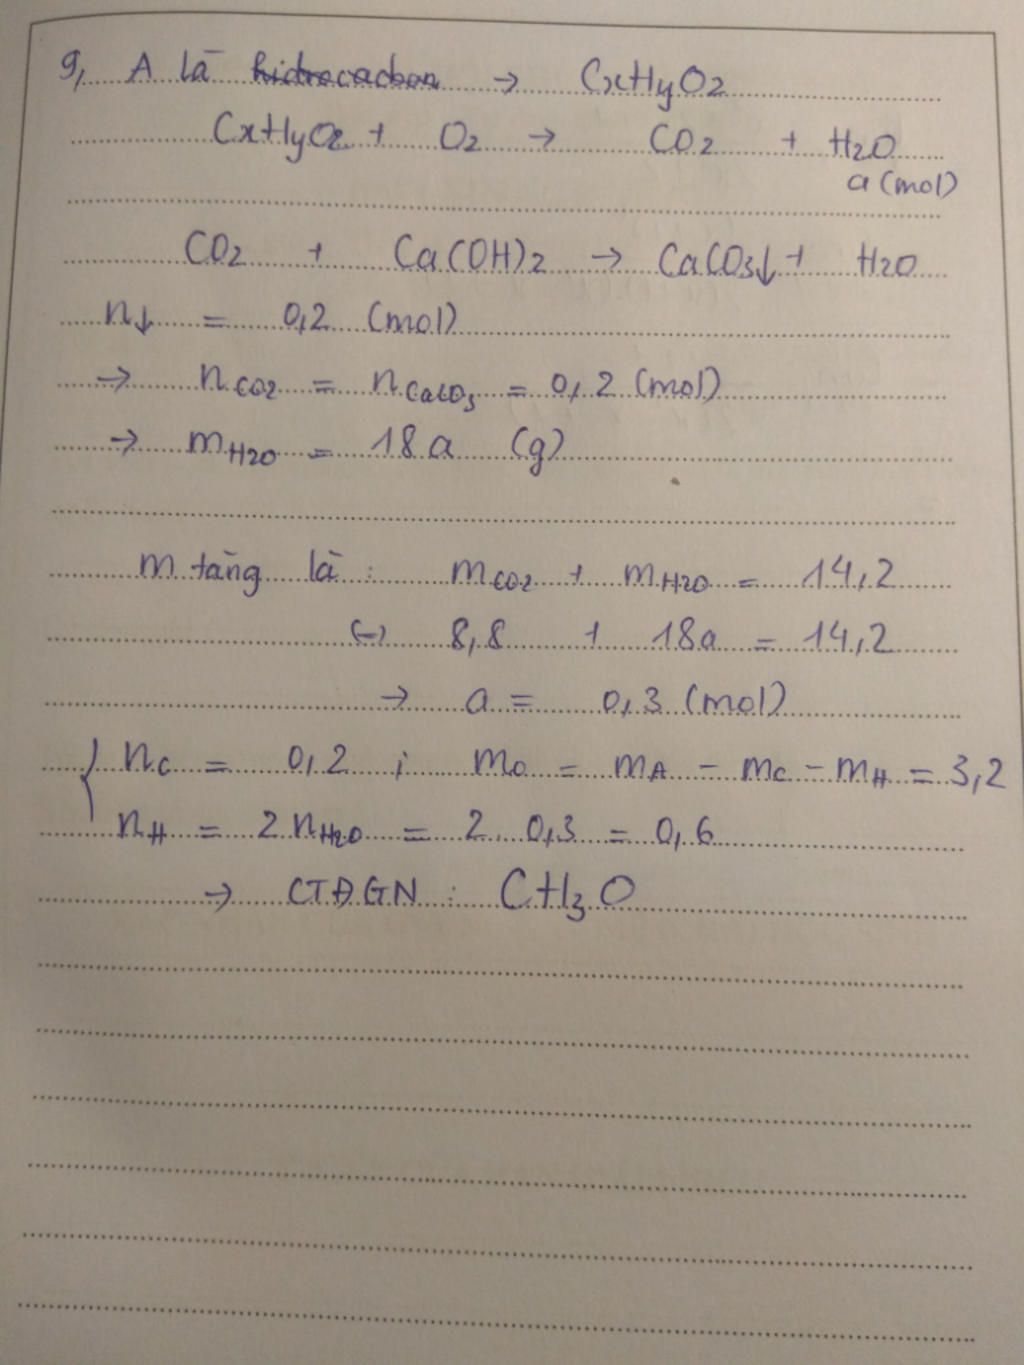 9, A là hidrocacbon → CxHyO2
CxHyO2 + O2 → CO2 + H2O
a (mol)
CO2 + Ca(OH)2 → CaCO3↓ + H2O
n↓ = 0,2 (mol)
→ nCO2 = nCaCO3 = 0,2 (mol)
→ mH2O = 18a (g)
m tăng là : mCO2 + mH2O = 14,2
(-) 8,8 + 18a = 14,2
→ a = 0,3 (mol)
nC = 0,2 ; mO = mA - mC - mH = 3,2
nH = 2nH2O = 2.0,3 = 0,6
→ CTĐGN : CH3O